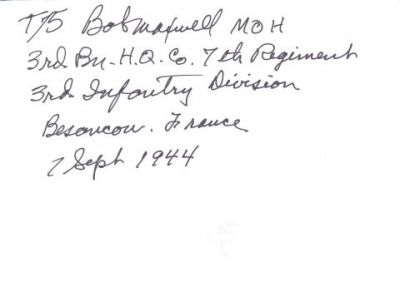 T/5 Bob Maxwell MOH
3rd Bn. H.Q. Co. 7th Regiment
3rd Infantry Division
Besancon. France
7 Sept 1944